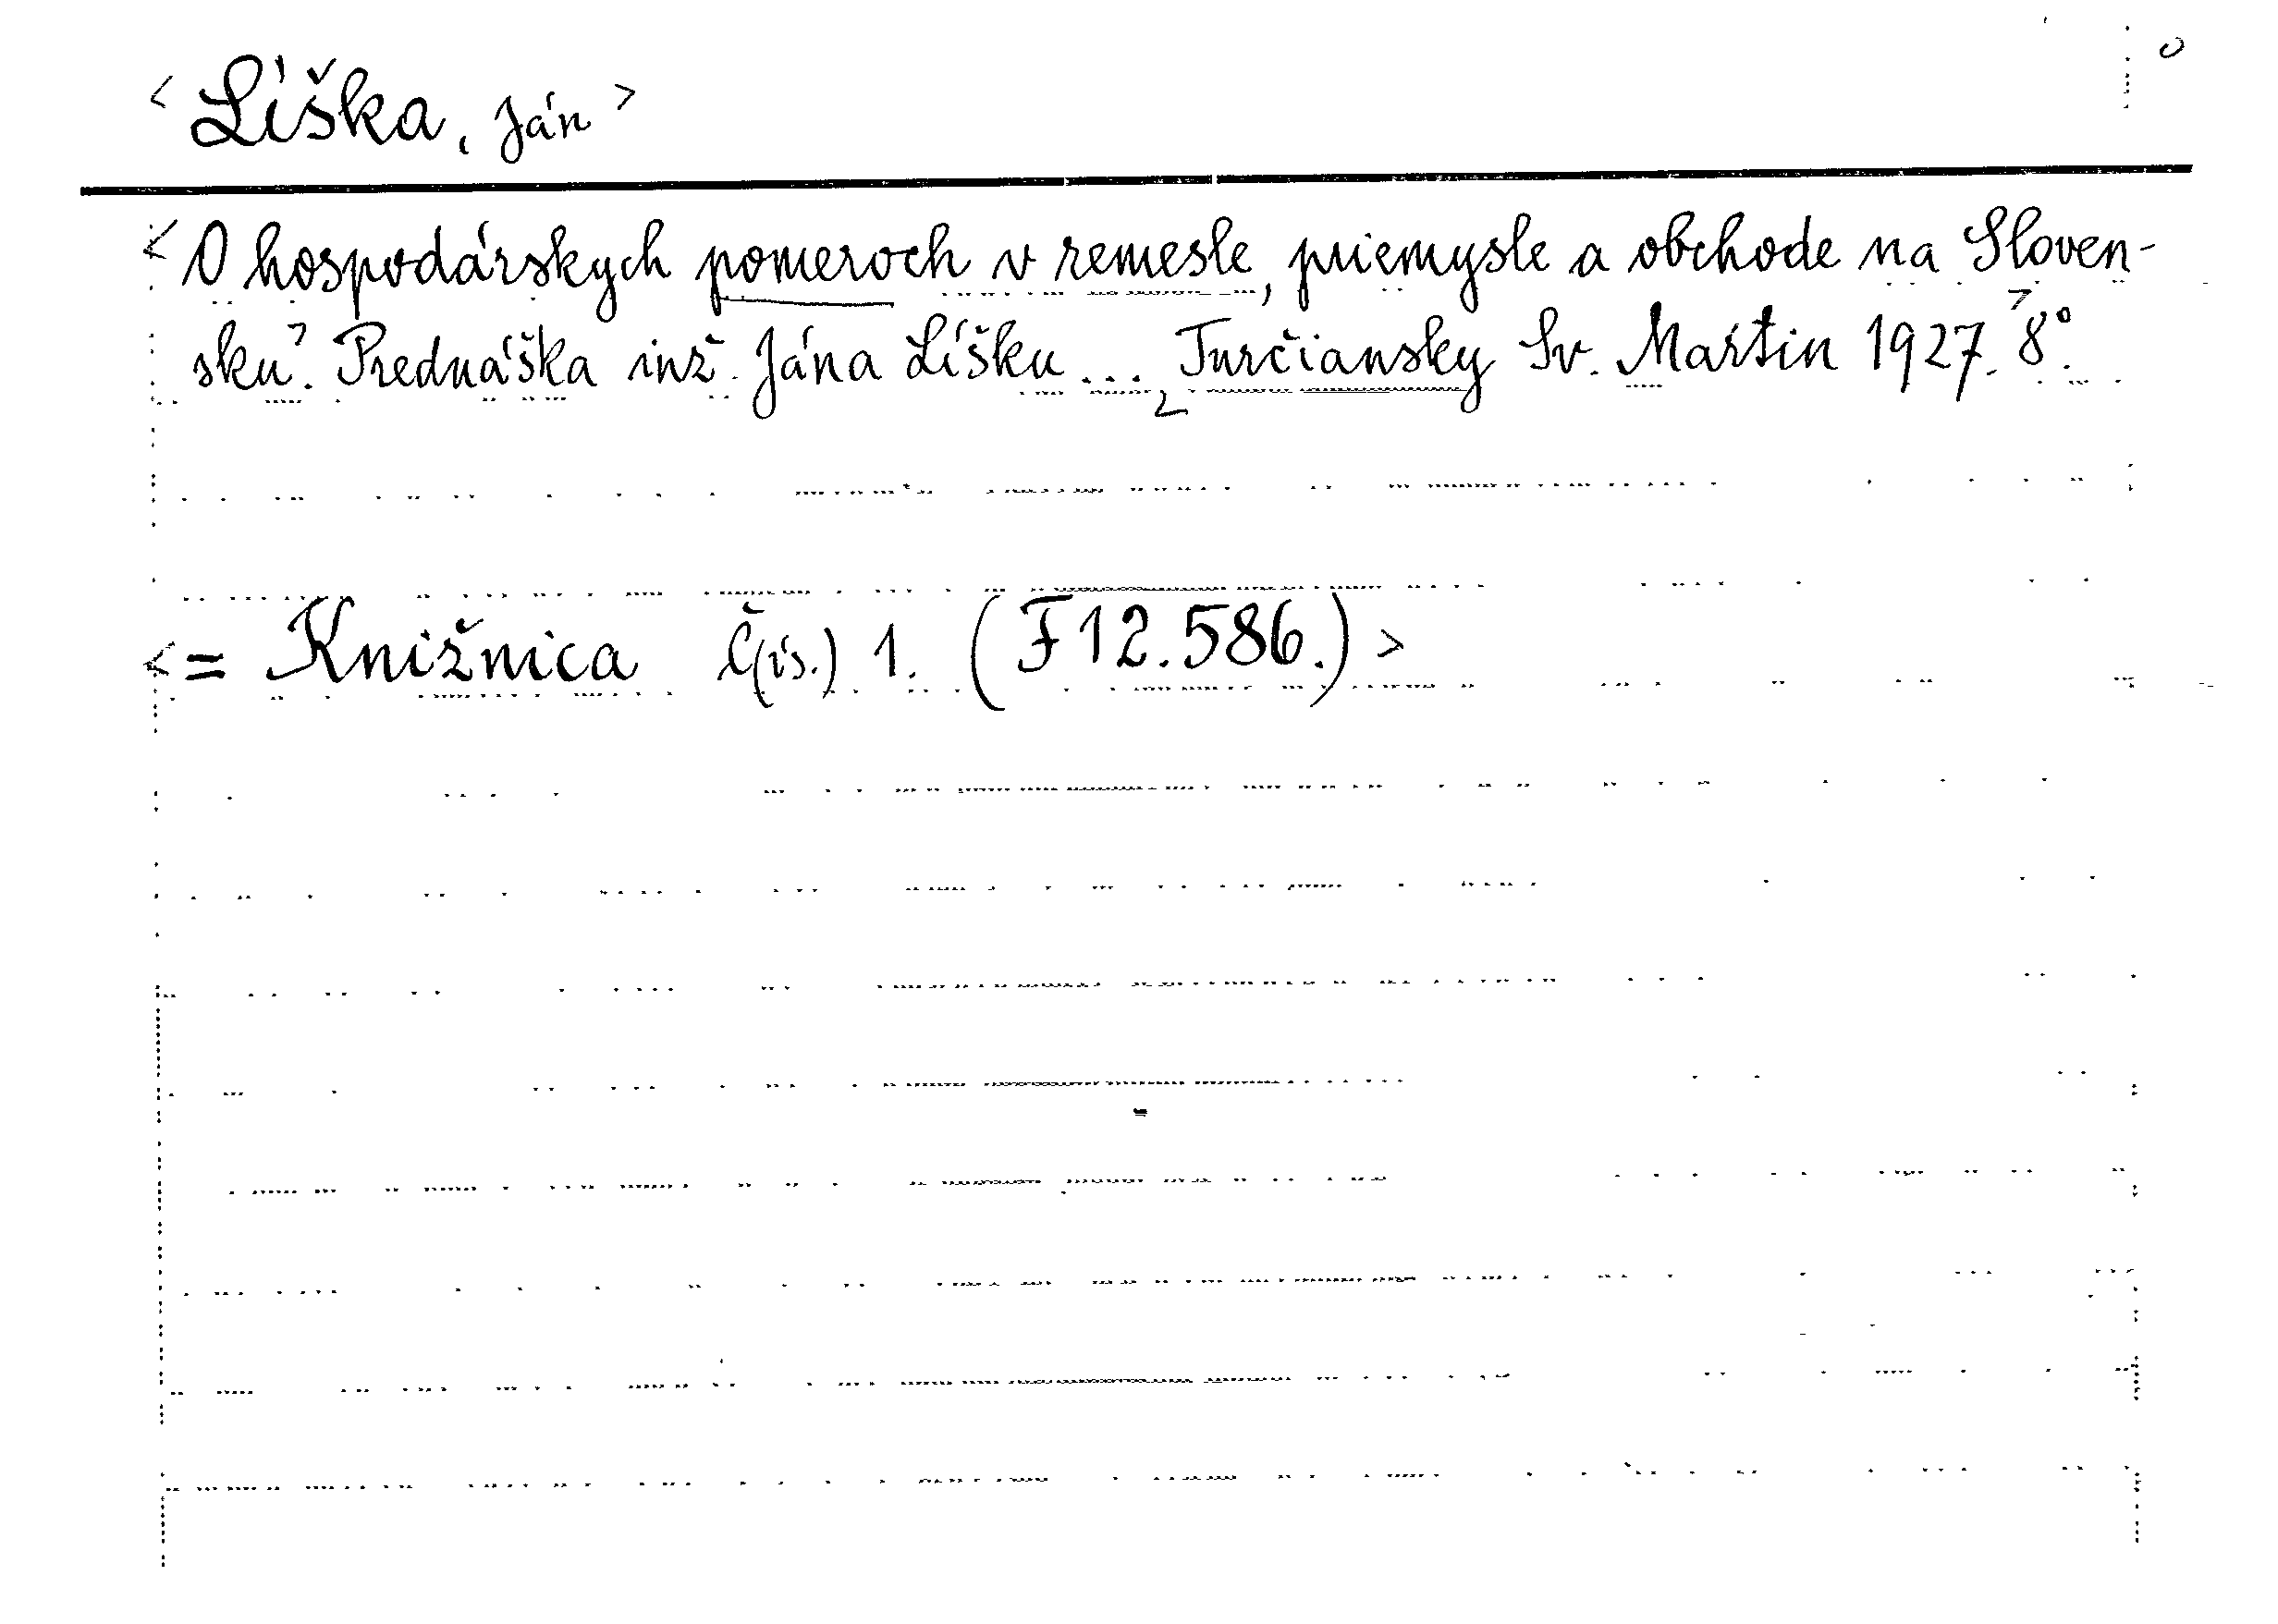 < Líška, Ján >
< O hospodárskych pomeroch v remesle, priemysle a obchode na Sloven-
sku>. Prednáška inž. Jána Líšku ... <Turčiansky Sv. Martin 1927.> 8°.
< = Knižnica Č(ís.) 1. (F12.586.) >